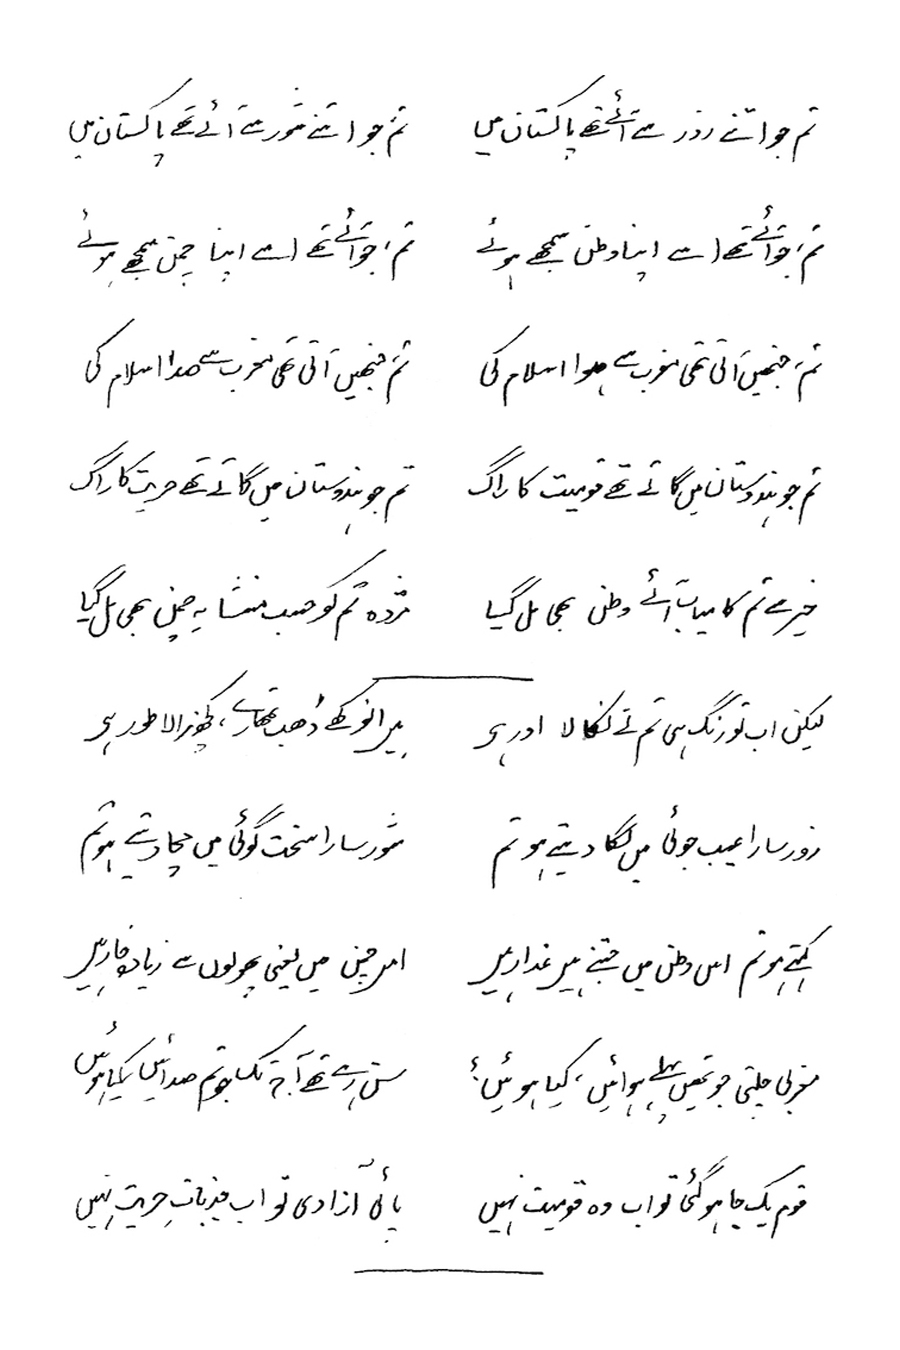 تم جو اتنے زور سے آئے تھے پاکستان میں تم جو اتنے شور سے آئے تھے پاکستان میں
تم، جو آئے تھے اسے اپنا وطن سمجھے ہوئے تم، جو آئے تھے اسے اپنا چمن سمجھے ہوئے
تم، جنھیں آتی تھی مغرب سے ہوا اسلام کی تم، جنھیں آتی تھی مغرب سے صدا اسلام کی
تم جو ہندوستان میں گاتے تھے قومیت کا راگ تم جو ہندوستان میں گاتے تھے حریت کا راگ
خیر سے تم کامیاب آئے وطن بھی مل گیا مژدہ تم کو حسب منشا یہ چمن بھی مل گیا
لیکن اب تو رنگ ہی تم نے نکالا اور ہی ہیں انوکھے ڈھب تمھارے، کچھ نرالا طور ہی
زور سارا عیب جوئی میں لگا دیتے ہو تم شور سارا سخت گوئی میں مچا دیتے ہو تم
کہتے ہو تم اس وطن میں جتنے ہیں غدار ہیں اس چمن میں یعنی پھولوں سے زیادہ خار ہیں
مغربی چلتی جو تھیں پہلے ہوائیں، کیا ہوئیں؟ سن رہے تھے آج تک جو تم صدائیں کیا ہوئیں
قوم یک جا ہو گئی تو اب وہ قومیت نہیں پائی آزادی تو اب جذباتِ حریت نہیں